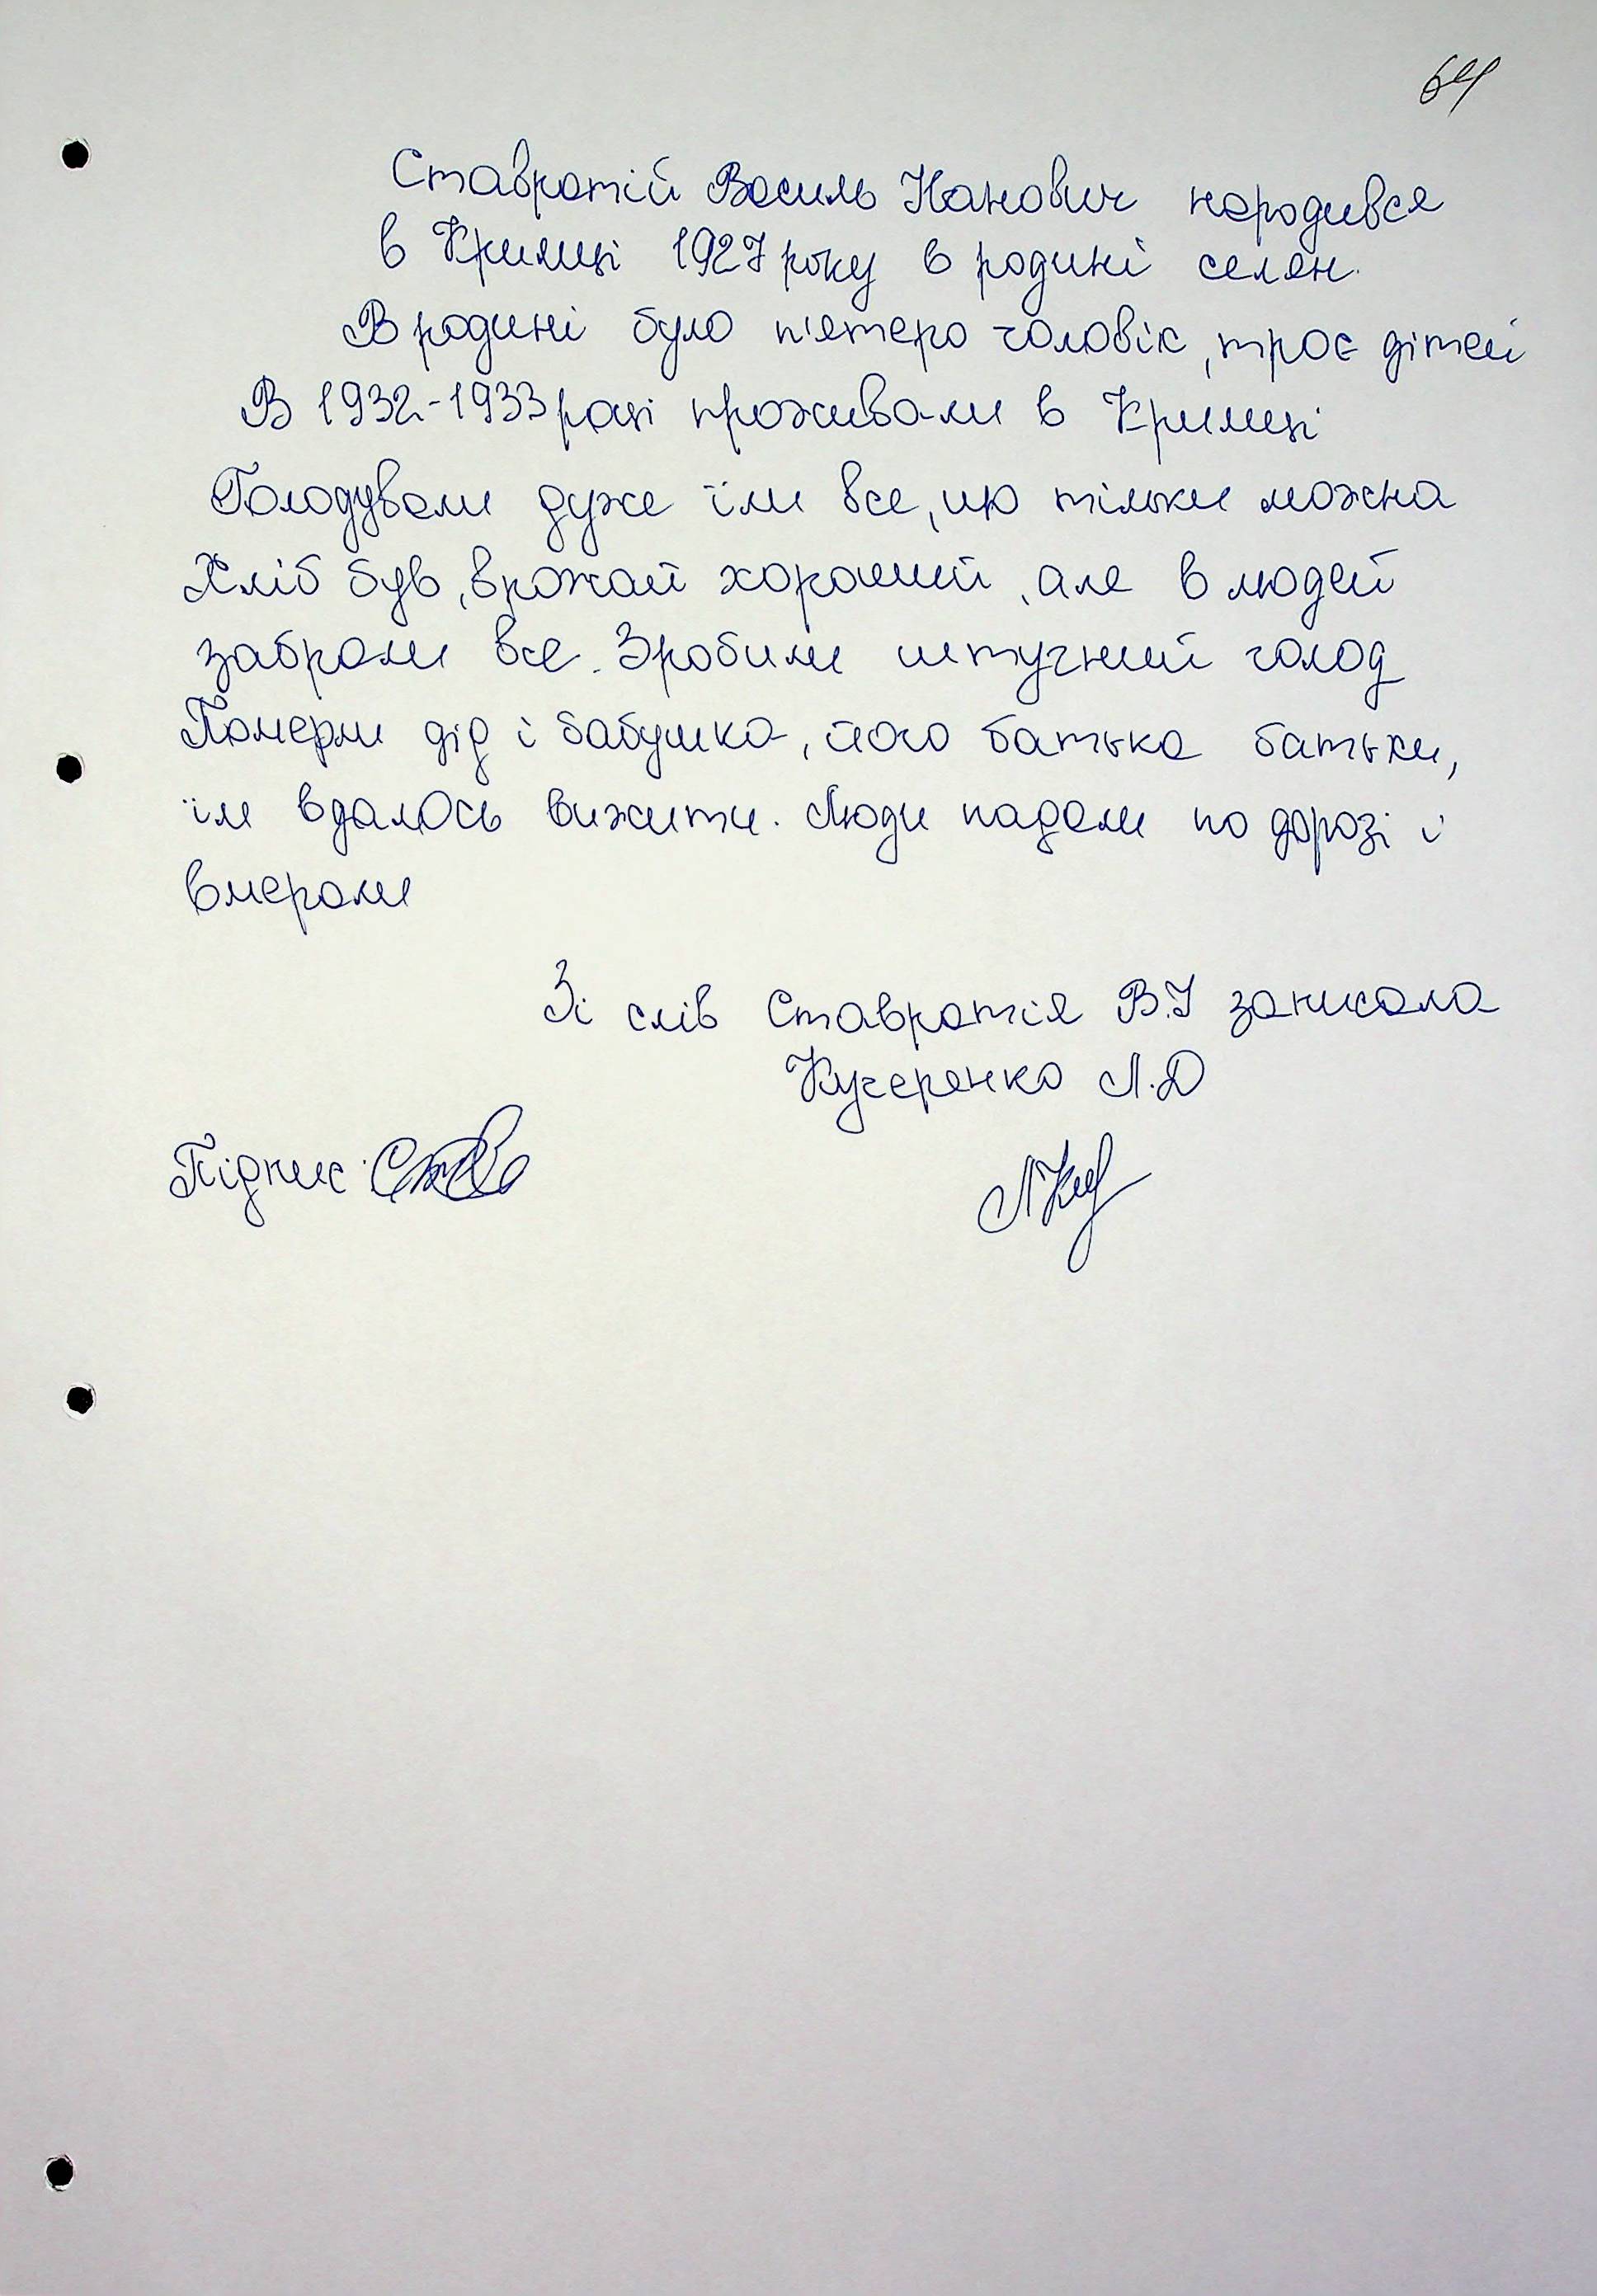 64
Ставратій Василь Іванович народився
в Кримці 1927 року в родині селян.
В родині було п'ятеро чоловік, троє дітей
В 1932-1933 році проживали в Кримці
Голодували дуже їли все, що тільки можна
Хліб був, врожай хороший, але в людей
забрали все. Зробили штучний голод
Померли дід і бабушка, його батька батьки,
їм вдалось вижити. Люди падали по дорозі і
вмерали
Зі слів Ставратія В.І записала
Кучеренко Л.Д
Підпис: